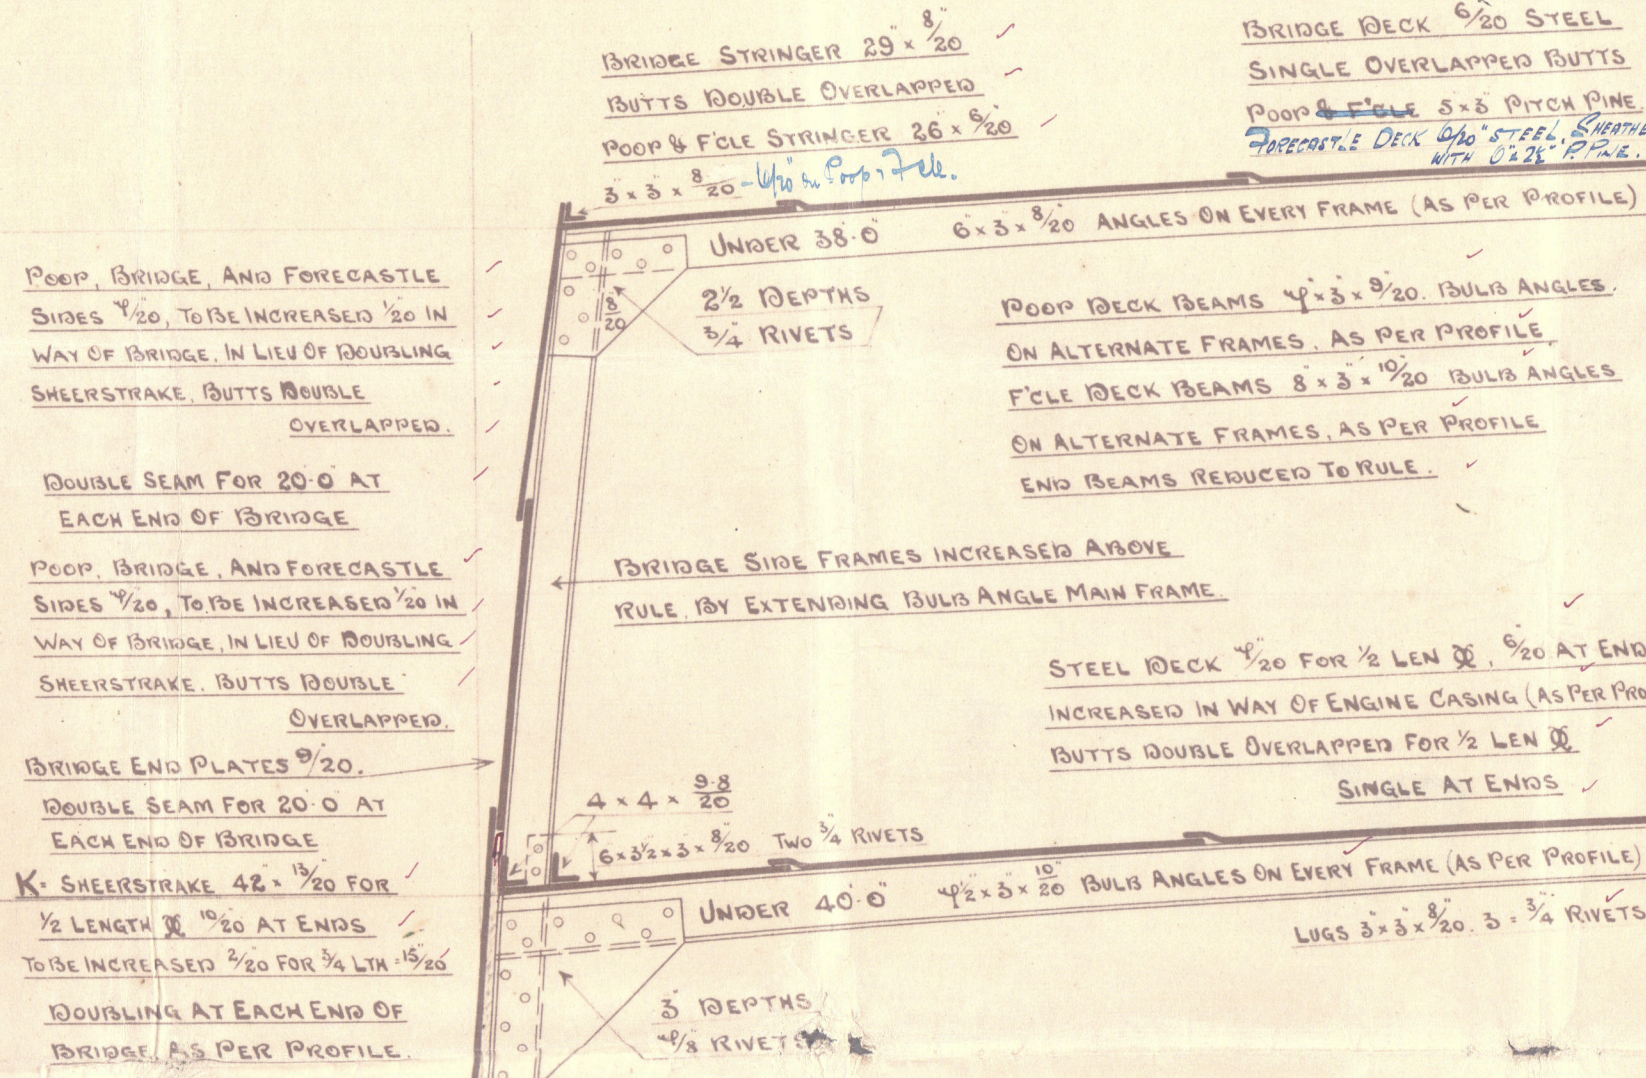 BRIDGE STRINGER 29" × 8/20"
BUTTS DOUBLE OVERLAPPED
POOP & F'CLE STRINGER 26" × 6/20"
3" × 3" × 8/20" - 6/20" on Poop & F'cle.
BRIDGE DECK 6/20" STEEL
SINGLE OVERLAPPED BUTTS
POOP & F'CLE 5" × 3" PITCH PINE
FORECASTLE DECK 6/20" STEEL, SHEATHE
WITH 6" × 2½" P. PINE.
UNDER 38'·0" 6" × 3" × 8/20" ANGLES ON EVERY FRAME (AS PER PROFILE)
8/20
2½ DEPTHS
¾" RIVETS
POOP DECK BEAMS 7" × 3" × 9/20". BULB ANGLES.
ON ALTERNATE FRAMES, AS PER PROFILE.
F'CLE DECK BEAMS 8" × 3" × 10/20" BULB ANGLES
ON ALTERNATE FRAMES, AS PER PROFILE
END BEAMS REDUCED TO RULE.
POOP, BRIDGE, AND FORECASTLE
SIDES 7/20", TO BE INCREASED 1/20" IN
WAY OF BRIDGE, IN LIEU OF DOUBLING
SHEERSTRAKE, BUTTS DOUBLE
OVERLAPPED.
DOUBLE SEAM FOR 20'·0" AT
EACH END OF BRIDGE
POOP, BRIDGE, AND FORECASTLE
SIDES 7/20", TO BE INCREASED 1/20" IN
WAY OF BRIDGE, IN LIEU OF DOUBLING
SHEERSTRAKE. BUTTS DOUBLE
OVERLAPPED.
BRIDGE END PLATES 9/20".
DOUBLE SEAM FOR 20'·0" AT
EACH END OF BRIDGE
K= SHEERSTRAKE 42" × 13/20" FOR
½ LENGTH 10/20" AT ENDS
TO BE INCREASED 2/20" FOR ¾ LTH = 15/20"
DOUBLING AT EACH END OF
BRIDGE, AS PER PROFILE.
BRIDGE SIDE FRAMES INCREASED ABOVE
RULE, BY EXTENDING BULB ANGLE MAIN FRAME.
STEEL DECK 7/20" FOR ½ LEN, 6/20" AT END
INCREASED IN WAY OF ENGINE CASING (AS PER PRO
BUTTS DOUBLE OVERLAPPED FOR ½ LEN
SINGLE AT ENDS
4 × 4 × 9·8/20
6 × 3½ × 3 × 8/20" TWO ¾" RIVETS
UNDER 40'·0" 7½" × 3" × 10/20" BULB ANGLES ON EVERY FRAME (AS PER PROFILE)
LUGS 3" × 3" × 8/20". 3 = ¾" RIVETS
3 DEPTHS
7/8" RIVETS